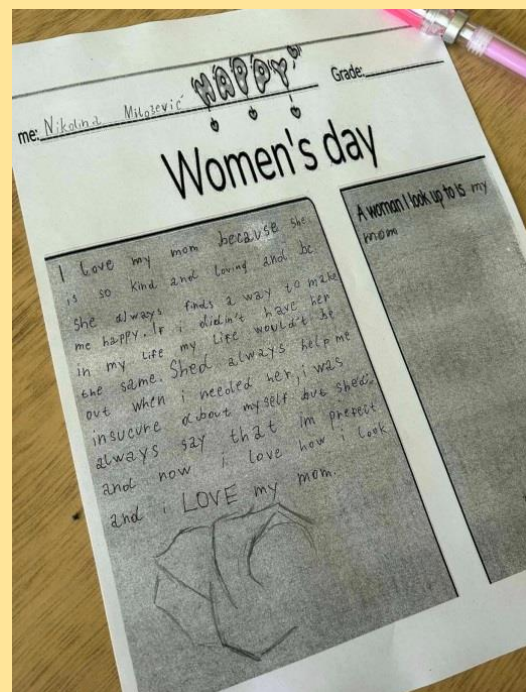 HAPPY
me: Nikolina Milošević
Grade:
Women's day
I love my mom because she
is so kind and loving and be
she always finds a way to make
me happy. If i didin't have her
in my life my life wouldn't be
the same. Shed always help me
out when i needed her, i was
insucure about myself but shed
always say that im preteit
and now i love how i look
and i LOVE my mom.
A woman I look up to is my
mom